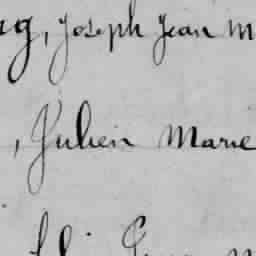 , Joseph Jean M
, Julien Marie